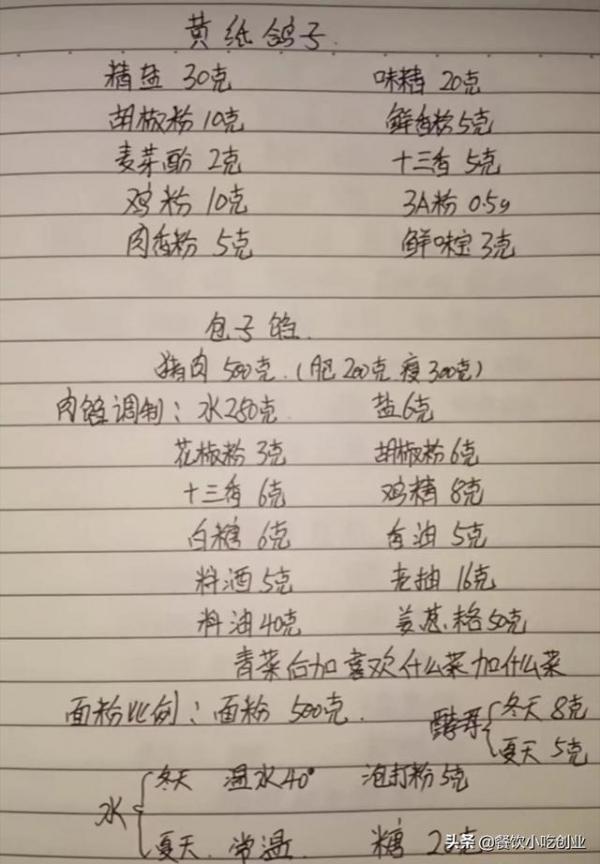 黄纸鸽子
精盐 30克 味精 20克
胡椒粉 10克 鲜香粉 5克
麦芽酚 2克 十三香 5克
鸡粉 10克 3A粉 0.5g
肉香粉 5克 鲜味宝 3克
包子馅
猪肉 500克.(肥200克 瘦300克)
肉馅调制: 水250克 盐6克
花椒粉 3克 胡椒粉 6克
十三香 6克 鸡精 8克
白糖 6克 香油 5克
料酒 5克 老抽 16克
料油 40克 姜葱 50克
青菜后加 喜欢什么菜加什么菜
面粉比例: 面粉 500克. 酵母 冬天 8克
夏天 5克
水 冬天 温水40° 泡打粉 5克
夏天. 常温 糖
头条 @餐饮小吃创业